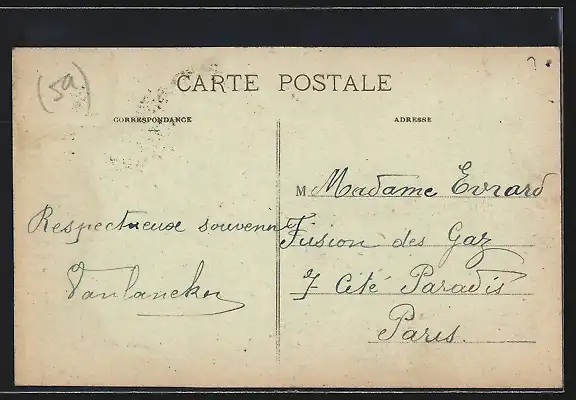 (5a)
CARTE POSTALE
CORRESPONDANCE
ADRESSE
M Madame Evrard
Respectueux souvenir
Fusion des Gaz
7 Cité Paradis
Vanlancker
Paris.